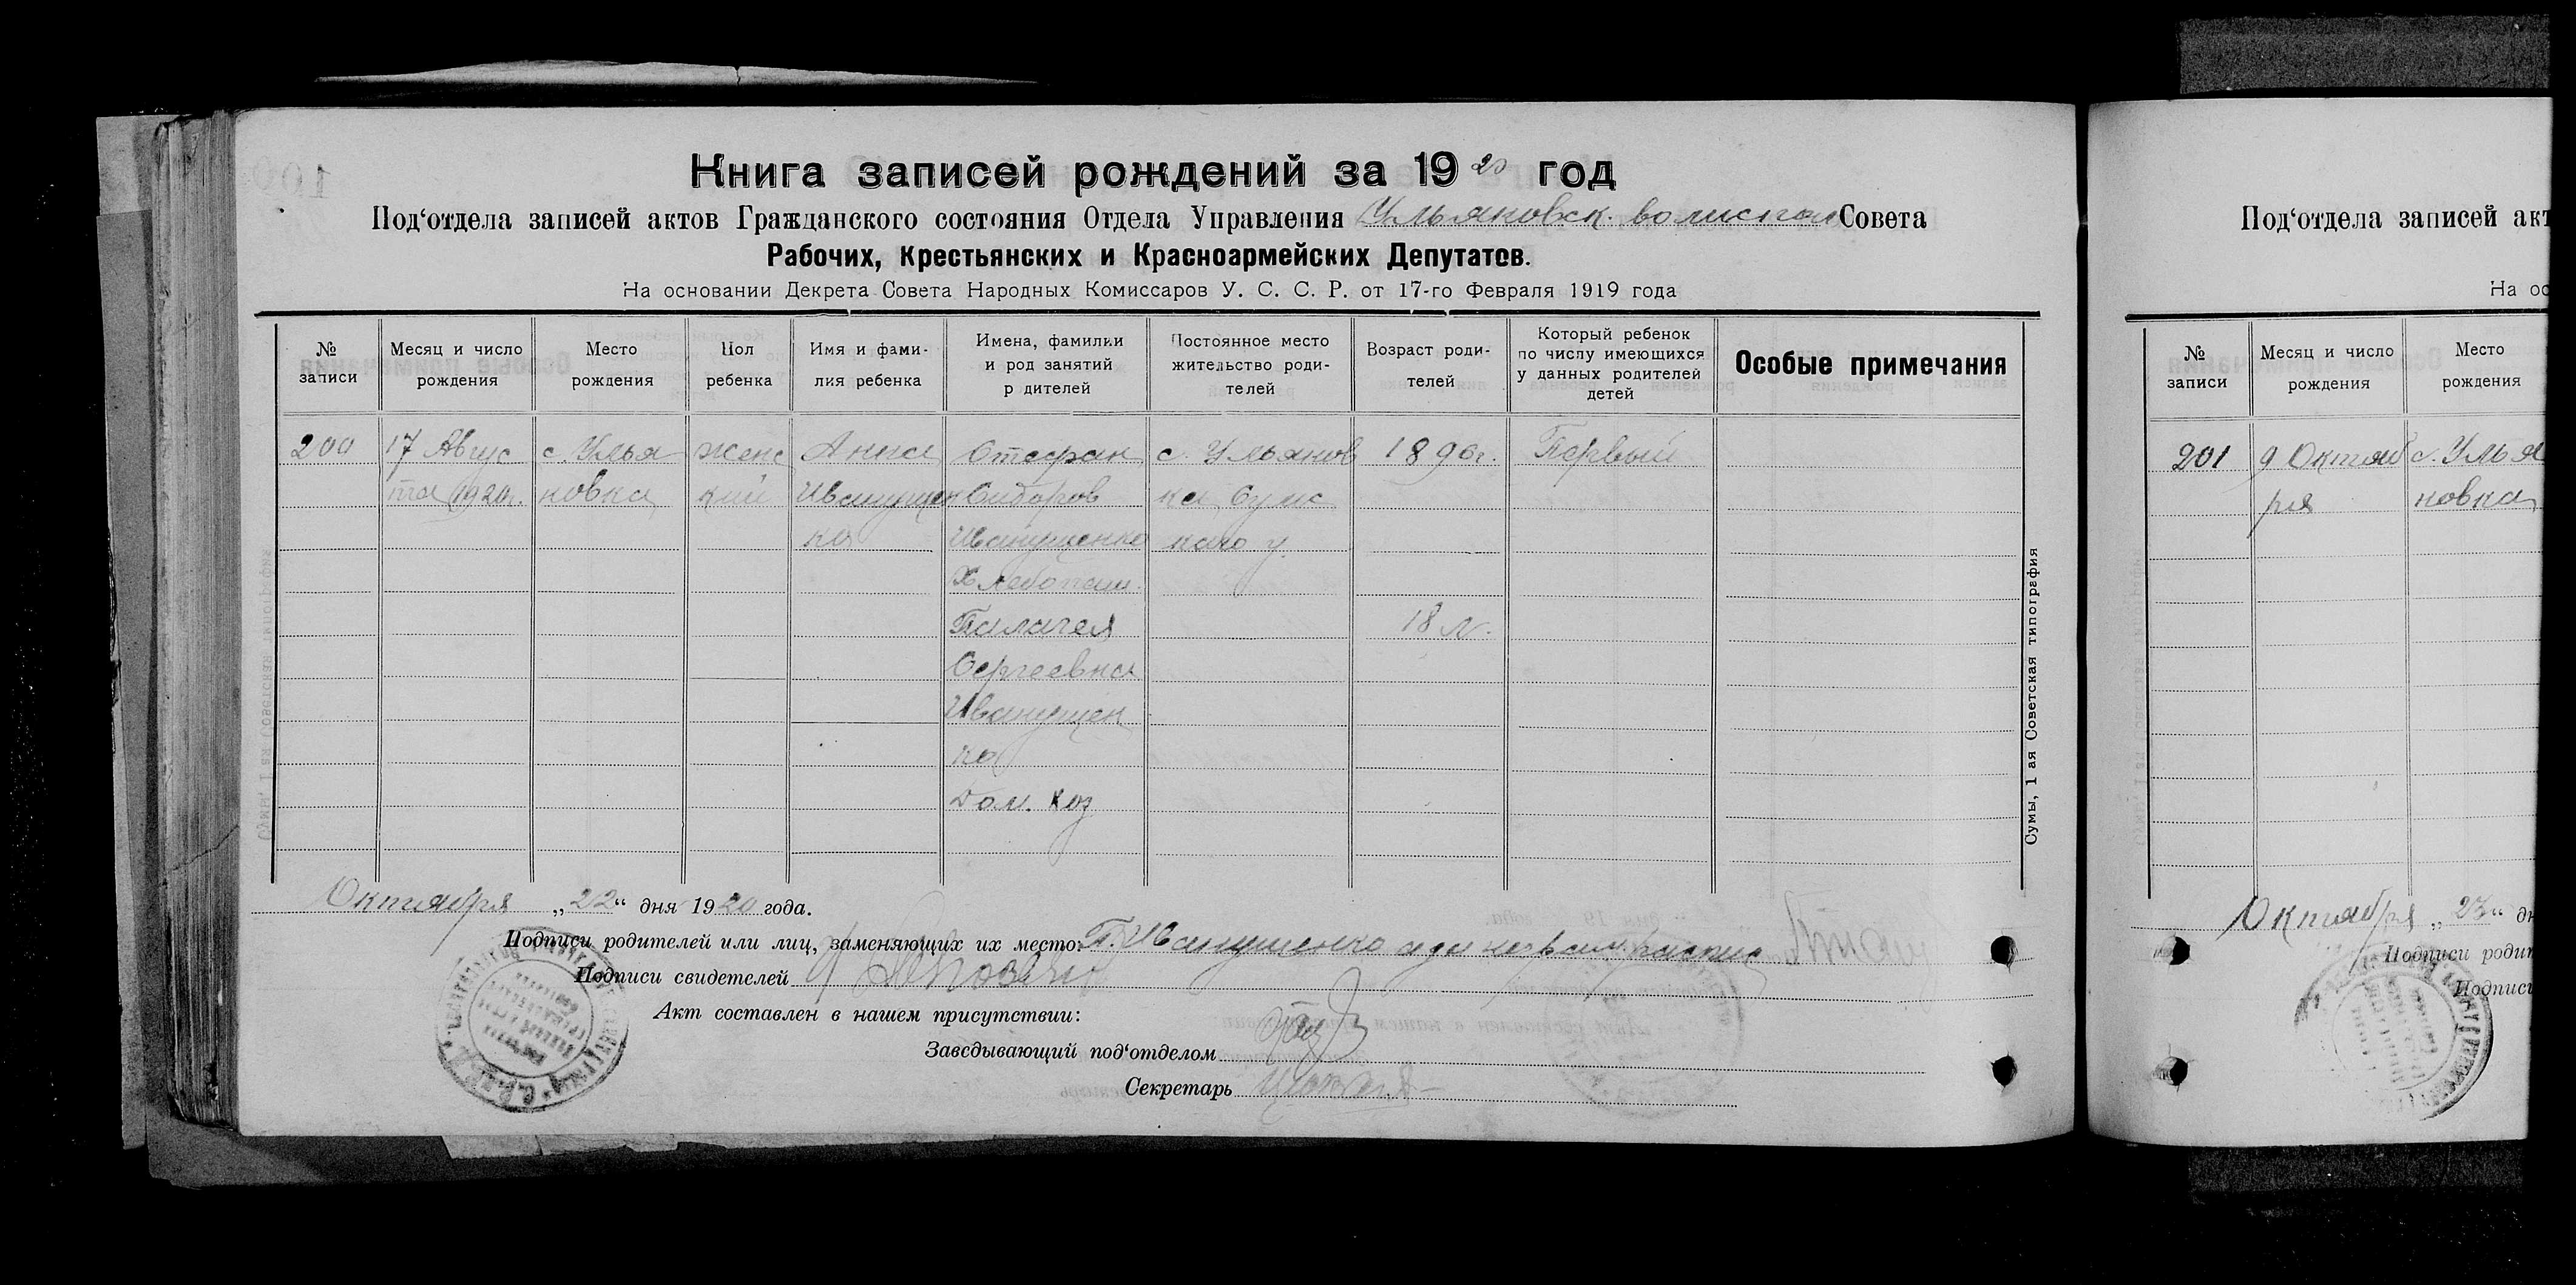 Книга записей рождений за 1920 год
Под‘отдела записей актов Гражданского состояния Отдела Управления Ульяновск. волисполк Совета
Рабочих, Крестьянских и Красноармейских Депутатов.
На основании Декрета Совета Народных Комиссаров У. С. С. Р. от 17-го Февраля 1919 года
№ записи
Месяц и число рождения
Место рождения
Пол ребенка
Имя и фами-
лия ребенка
Имена, фамилии
и род занятий
р дителей
Постоянное место
жительство роди-
телей
Возраст роди-
телей
Который ребенок
по числу имеющихся
у данных родителей
детей
Особые примечания
200
17 Авгус
та 1920г.
с. Улья
новка
женс
кий
Анна
Иванущен
ка
Сидоров
Иванущенко
Хлебопаш.
Палагея
Сергеевна
Иванущен
ка
Дом. хоз
с. Ульянов
ка, Сумс
каго у.
1896г.
18 л.
Первый
Сумы, 1 ая Советская типография
Октября „22“ дня 1920 года.
Подписи родителей или лиц, заменяющих их место: П. Иванущенко
Подписи свидетелей
Акт составлен в нашем присутствии:
Заведывающий под‘отделом
Секретарь
Под‘отдела записей акт
На ос
№ записи
Месяц и число рождения
Место рождения
201
9 Октяб
ря
с. Улья
новка
Октября „23“ дн
Подписи родит
Подписи